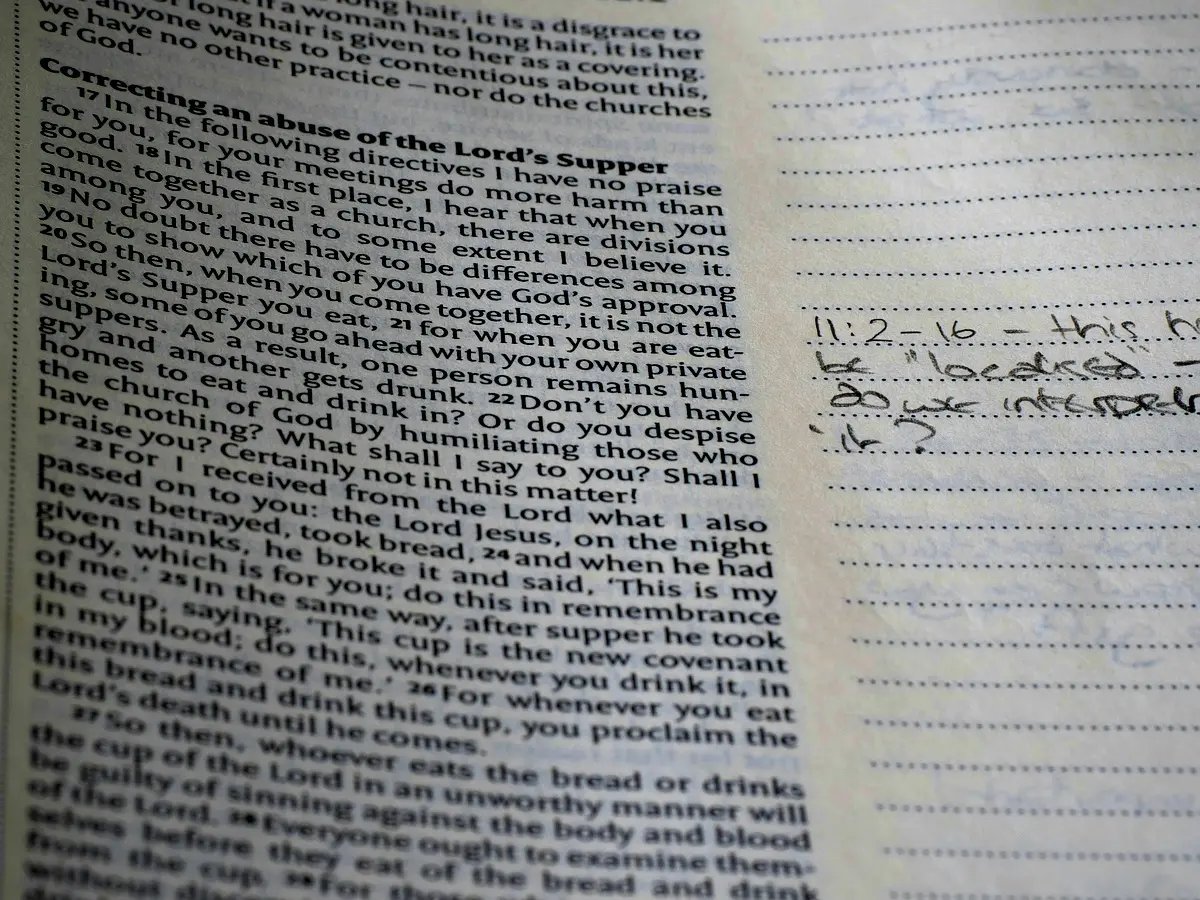 long hair, it is a disgrace to
if a woman has long hair, it is her
long hair is given to her as a covering.
anyone wants to be contentious about this,
we have no other practice – nor do the churches
of God.
Correcting an abuse of the Lord's Supper
17 In the following directives I have no praise
for you, for your meetings do more harm than
good. 18 In the first place, I hear that when you
come together as a church, there are divisions
among you, and to some extent I believe it.
19 No doubt there have to be differences among
you to show which of you have God's approval.
20 So then, when you come together, it is not the
Lord's Supper you eat, 21 for when you are eat-
ing, some of you go ahead with your own private
suppers. As a result, one person remains hun-
gry and another gets drunk. 22 Don't you have
homes to eat and drink in? Or do you despise
the church of God by humiliating those who
have nothing? What shall I say to you? Shall I
praise you? Certainly not in this matter!
23 For I received from the Lord what I also
passed on to you: the Lord Jesus, on the night
he was betrayed, took bread, 24 and when he had
given thanks, he broke it and said, 'This is my
body, which is for you; do this in remembrance
of me.' 25 In the same way, after supper he took
the cup, saying, 'This cup is the new covenant
in my blood; do this, whenever you drink it, in
remembrance of me.' 26 For whenever you eat
this bread and drink this cup, you proclaim the
Lord's death until he comes.
27 So then, whoever eats the bread or drinks
the cup of the Lord in an unworthy manner will
be guilty of sinning against the body and blood
of the Lord. 28 Everyone ought to examine them-
selves before they eat of the bread and drink
from the cup. 29 For those
without
11:2-16 – this
be "localised" –
do we interpret
it?